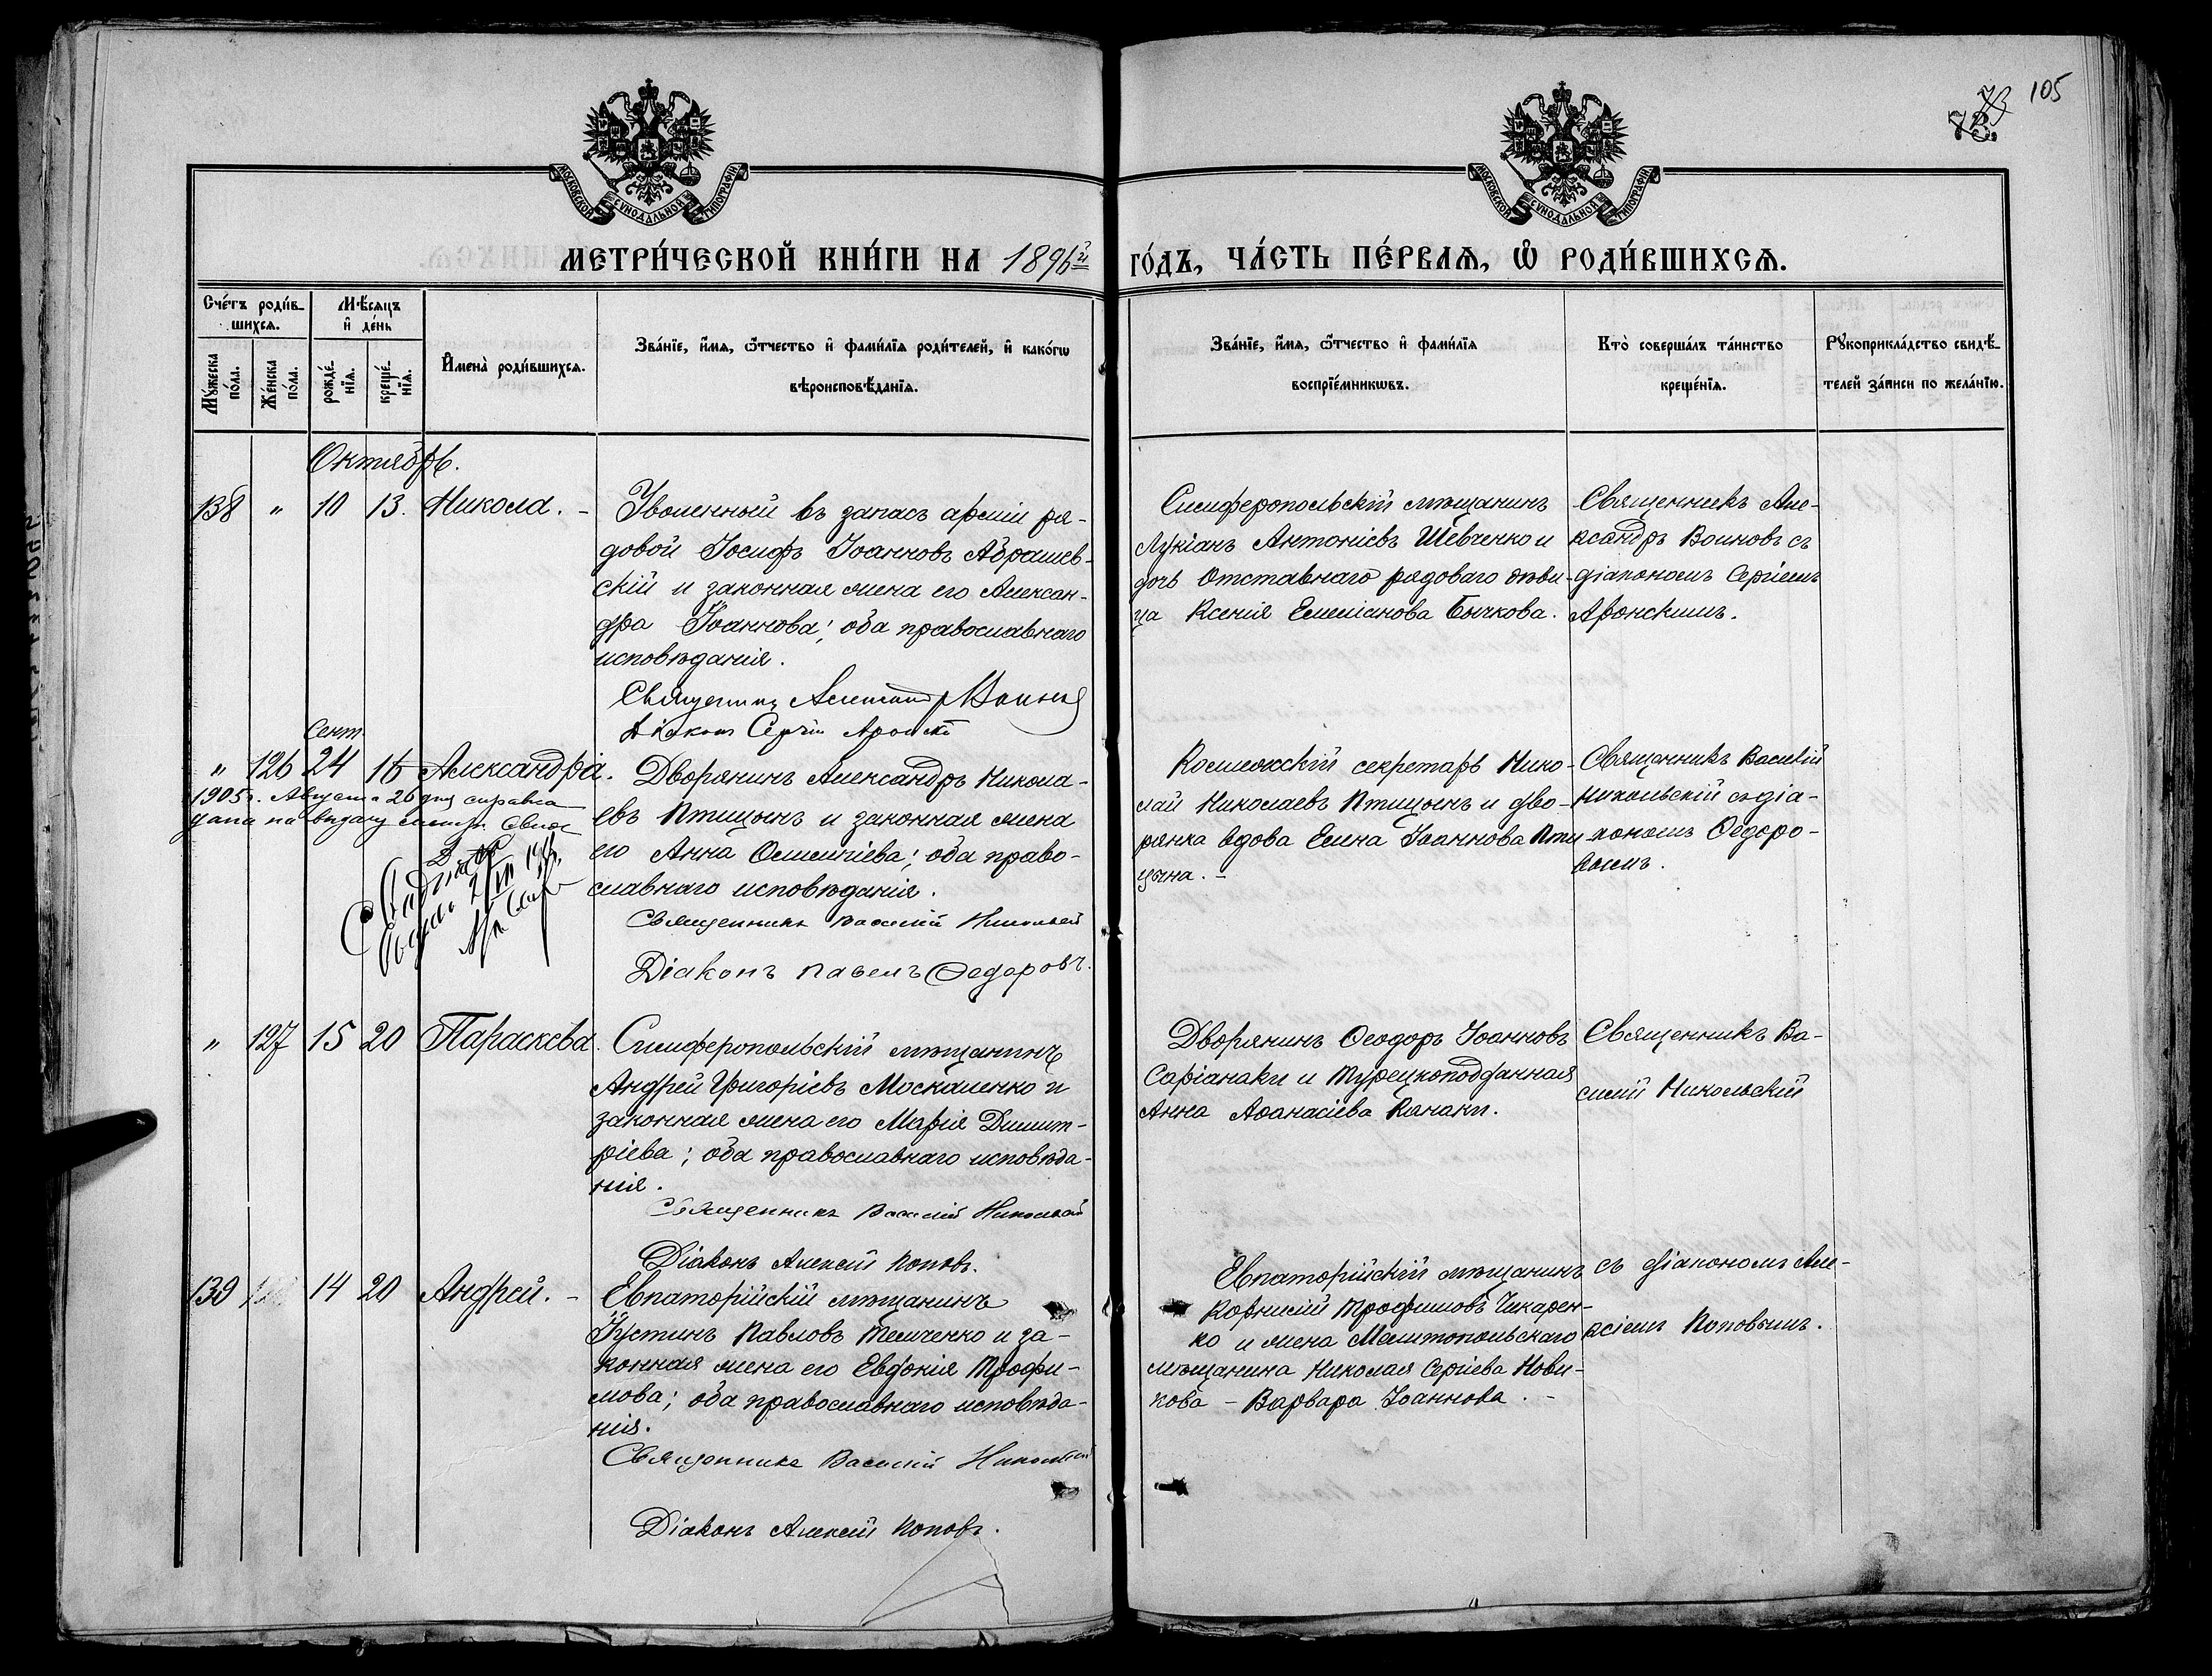 73.
105
МОСКОВСКОЙ СѴНОДАЛЬНОЙ ТИПОГРАФІИ
МОСКОВСКОЙ СѴНОДАЛЬНОЙ ТИПОГРАФІИ
МЕТРИ́ЧЕСКОЙ КНИ́ГИ НА 1896й ГО́ДЪ, ЧА́СТЬ ПЕ́РВАѦ, Ѽ РОДИ́ВШИХСѦ.
Сче́тъ роди́в-
шихсѧ.
Мꙋ́жеска по́ла.
Же́нска по́ла.
Мѣ́сяцъ
и де́нь
рожде́нїѧ.
креще́нїѧ.
Имена̀ роди́вшихсѧ.
Зва́нїе, и́мѧ, ѻ́тчество и фами́лїѧ роди́телей, и како́гѡ
вѣроисповѣ́данїѧ.
Зва́нїе, и́мѧ, ѻ́тчество и фами́лїѧ
воспрїе́мникѡвъ.
Кто̀ соверша́лъ та́инство
креще́нїѧ.
Рꙋкоприкла́дство свидѣ́-
телей за́писи по жела́нїю.
Октябрь.
138 " 10 13. Никола. -
Уволенный въ запасъ арміи ря-
довой Іосифъ Іоанновъ Абрашев-
скій и законная жена его Алексан-
дра Іоаннова; оба православнаго
исповѣданія.
Священникъ Александръ Воиновъ
Діаконъ Сергій Аронскій
Симферопольскій мѣщанинъ
Лукіанъ Антоніевъ Шевченко и
дочь отставнаго рядоваго дѣви-
ца Ксенія Емеліанова Бычкова.
Священникъ Але-
ксандръ Воиновъ съ
діакономъ Сергіемъ
Аронскимъ.
Сент.
" 126 24 16 Александра.
1905 г. Августа 26 дня справка
дана на выдачу
Дворянинъ Александръ Никола-
евъ Птицынъ и законная жена
его Анна; оба право-
славнаго исповѣданія.
Священникъ Василій Никольскій
Діаконъ Павелъ Ѳедоровъ.
Коллежскій секретарь Нико-
лай Николаевъ Птицынъ и дво-
рянка вдова Елена Іоаннова Пти-
цына. -
Священникъ Василій
Никольскій съ діа-
кономъ Ѳедоро-
вымъ.
" 127 15 20 Параскева.
Симферопольскій мѣщанинъ
Андрей Григоріевъ Москаленко и
законная жена его Марія Димит-
ріева; оба православнаго исповѣда-
нія.
Священникъ Василій Никольскій
Діаконъ Алексій Поповъ.
Дворянинъ Ѳеодоръ Іоанновъ
Саріанаки и турецкоподданная
Анна Аѳанасіева Канаки.
Священникъ Ва-
силій Никольскій
съ діакономъ Але-
ксіемъ Поповымъ.
139 14 20 Андрей. -
Евпаторійскій мѣщанинъ
Іустинъ Павловъ Темченко и за-
конная жена его Евдокія Трофи-
мова; оба православнаго исповѣда-
нія.
Священникъ Василій Никольскій
Діаконъ Алексій Поповъ.
Евпаторійскій мѣщанинъ
Корнилій Трофимовъ Чикарен-
ко и жена Мелитопольскаго
мѣщанина Николая Сергіева Нови-
кова - Варвара Іоаннова. -